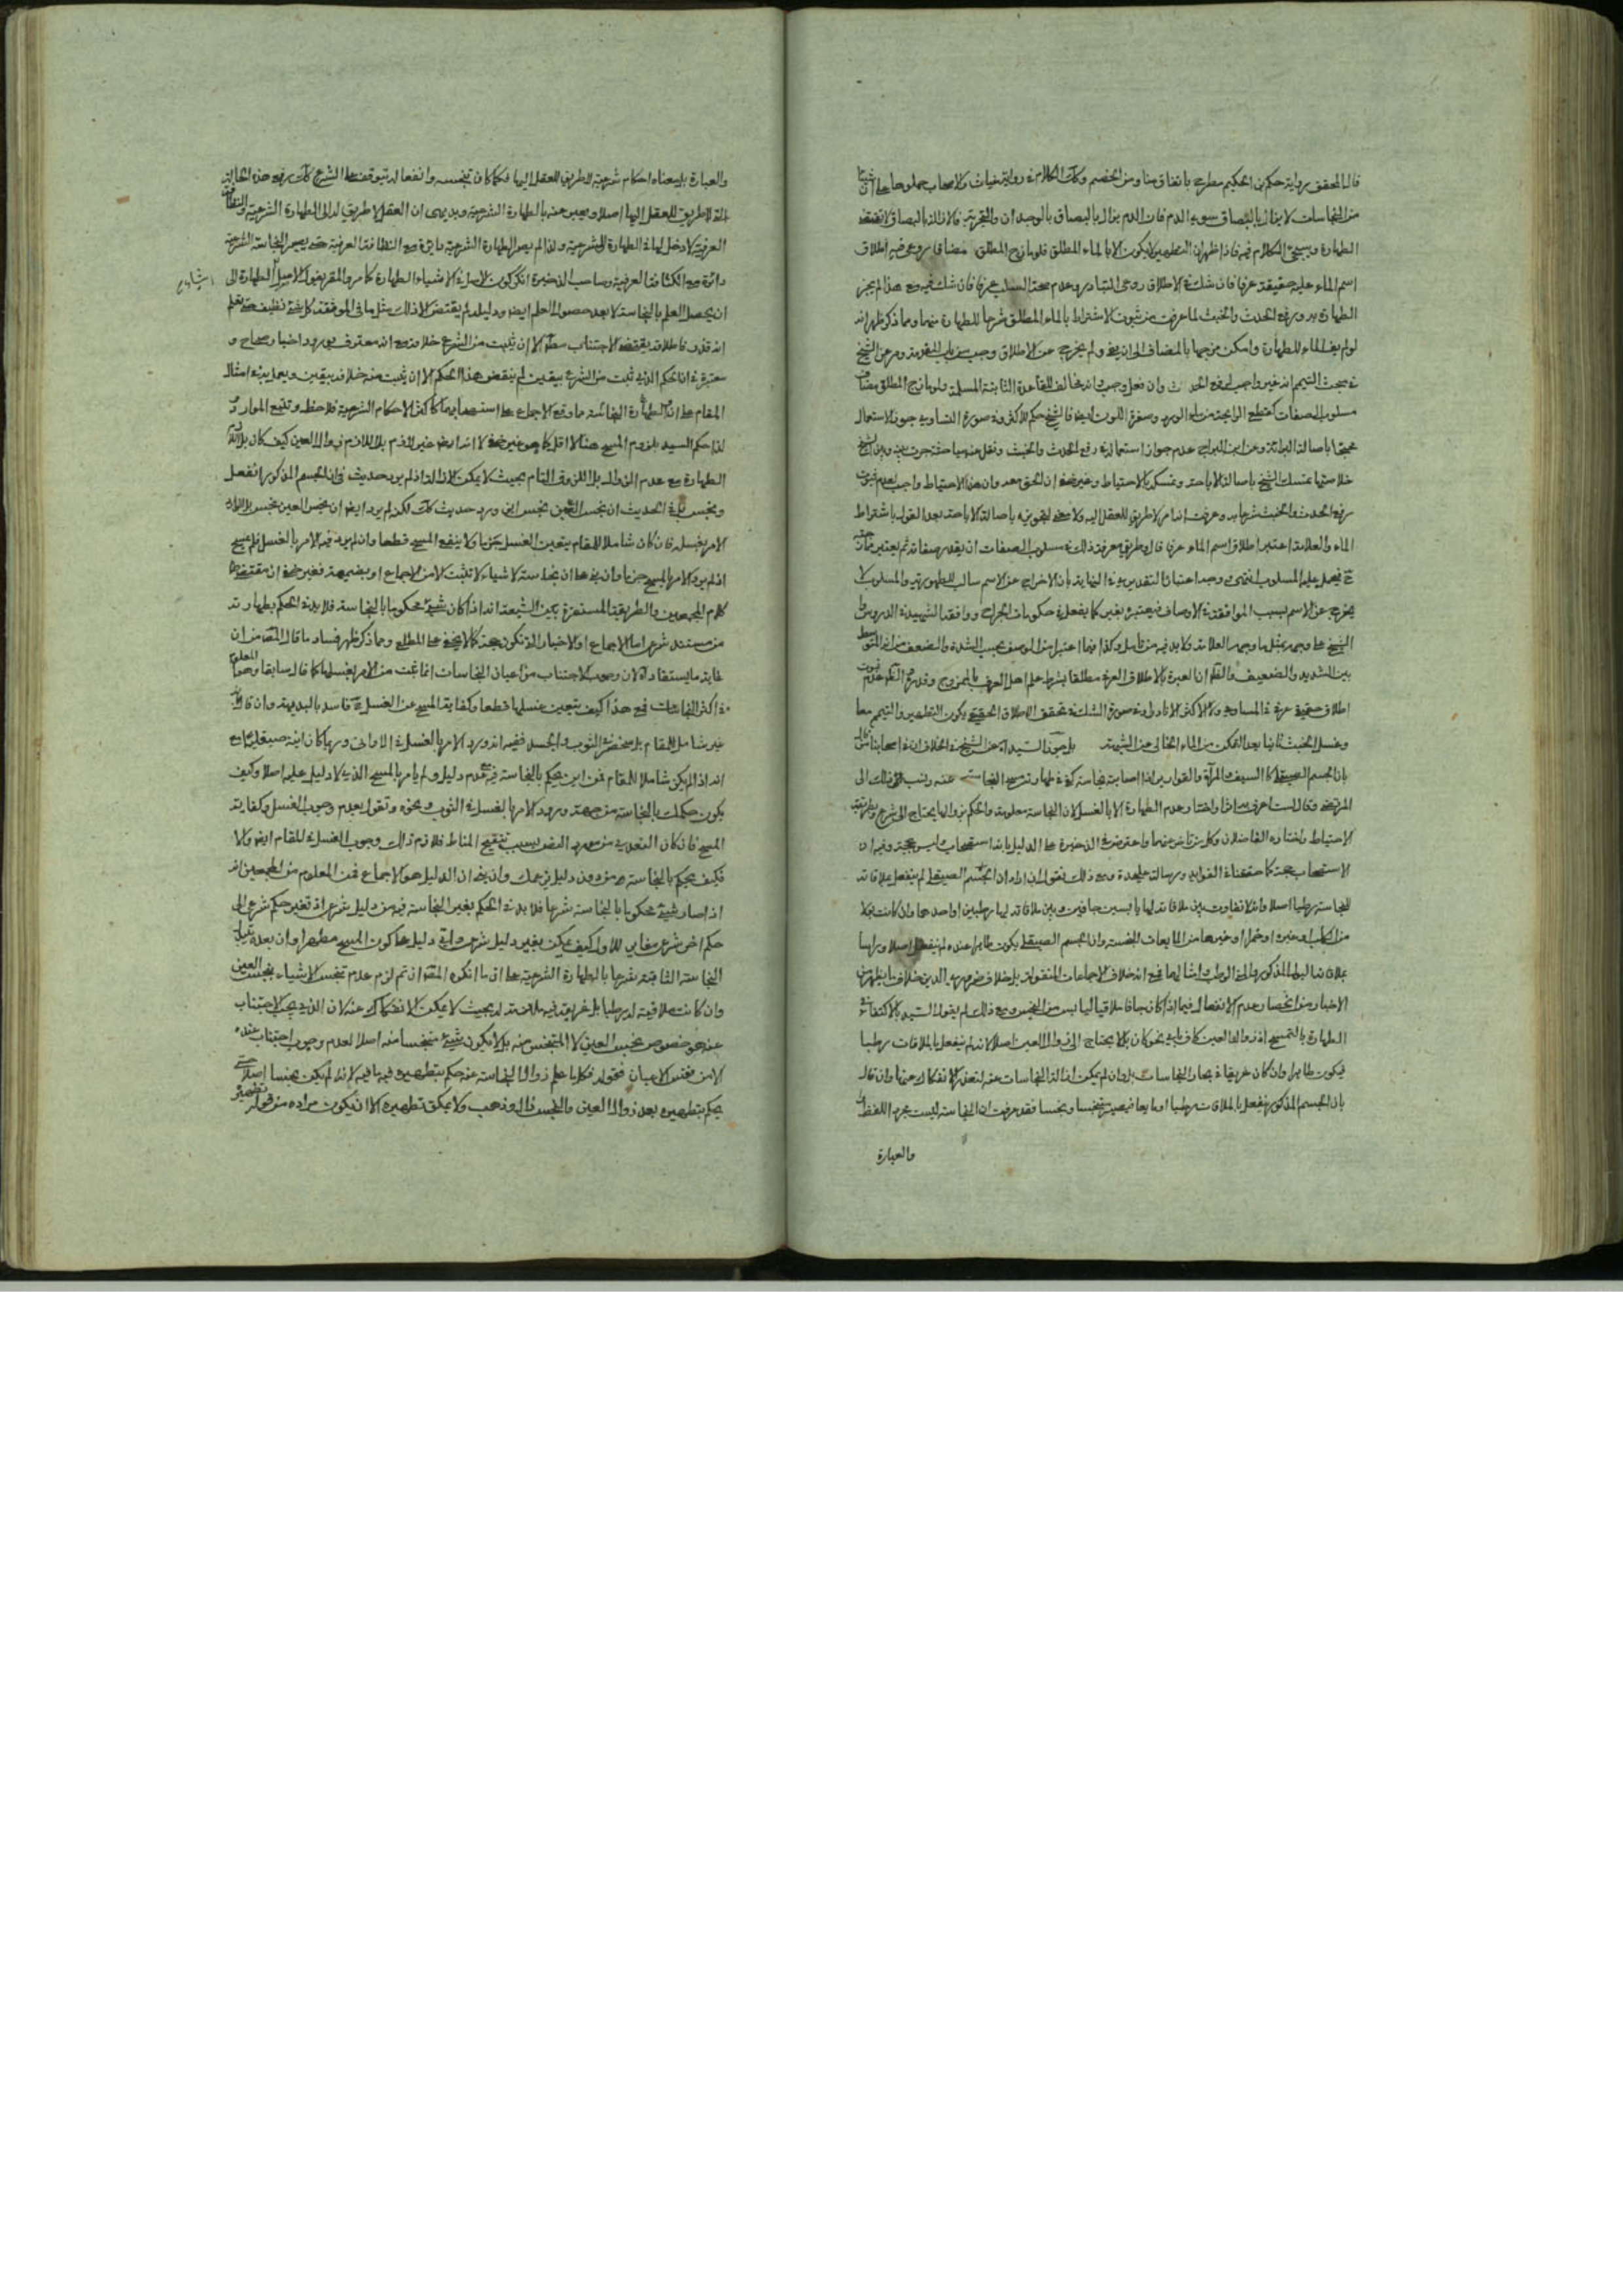 قال المحقق برواية حكم بن الحكيم مطرحة باتفاق منا ومن الخصم وكك الكلام في رواية غياث والاصحاب حملوها على ان شيئا
من النجاسات لا يزال بالبصاق سوى الدم فان الدم يزال بالبصاق بالوجدان والتجربة فالازالة بالبصاق لا تقتضى
الطهارة وسيجئ الكلام فيه فاذا ظهر ان التطهير لا يكون الا بالماء المطلق فلو مازج المطلق مضاف روعى فيه اطلاق
اسم الماء عليه حقيقة عرفا فان شك في الاطلاق روعى التبادر وعدم صحة السلب عرفا فان شك فيه مع هذا لم يجز
الطهارة به ورفع الحدث والخبث لما عرفت من ثبوت الاشتراط بالماء المطلق شرعا للطهارة منهما ومما ذكر ظهر انه
لو لم يف الماء للطهارة وامكن مزجها بالمضاف الى ان يفى ولم يخرج عن الاطلاق وجب من باب المقدمة ومر عن الشيخ
في مبحث التيمم انه غير واجب لرفع الحدث وان فعل وجب وانه مخالف للقاعدة الثابتة المسلمة ولو مازج المطلق مضاف
مسلوب الصفات كمنقطع الرايحة من ماء الورد وصفرة اللون ايضا فالشيخ حكم للاكثر وفي صورة التساوى جوز الاستعمال
محتجا باصالة البراءة وعن ابن البراج عدم جواز استعماله في رفع الحدث والخبث ونقل عنه مباحثة جرت بينه وبين الشيخ
خلاصتها تمسك الشيخ باصالة الاباحة وتمسكه بالاحتياط وغير خفى ان الحق معه وان هذا الاحتياط واجب لعدم ثبوت
رفع الحدث والخبث شرعا به وعرفت انه امر لا طريق للعقل اليه ولا معنى لتجويزه باصالة الاباحة بعد القول باشتراط
الماء والعلامة اعتبر اطلاق اسم الماء عرفا قال وطريق معرفة ذلك في مسلوب الصفات ان يقدر صفاته ثم يعتبر ممازجته
ح فيحمل عليه المسلوب انتهى وجه اعتبار التقدير في النهاية بان الاخراج عن الاسم سالب للطهورية والمسلوب لا
يخرج عن الاسم بسبب الموافقة في الاوصاف فيعتبر بغيره كما يفعل في حكومات الجراح ووافقه الشهيد في الدروس
الشيخ على وجمع بمثل ما وجه العلامة ولا بد فيه من تأمل وكذا فيما اعتبرا من الوصف بحسب الشدة والضعف من انه المتوسط
بين الشديد والضعيف والظ ان العبرة بالاطلاق العرفى مطلقا بشرط علم اهل العرف بالممزوج وقدر مع الظ عدم ثبوت
اطلاق حقيقة عرفية في المساوى ولا الاكثر الا نادرا وفي صورة الشك في تحقق الاطلاق الحقيقي يكون التطهير والتيمم معا
وغسل الخبث ثانيا بعد التمكن من الماء الخالى عن الشبهة بل جوز السيد نقل عنه الشيخ في الخلاف ان في اصحابنا من قال
بان الجسم الصيقل كالسيف والمرآة والقوارير اذا اصابته نجاسة كفى في طهارته مسح النجاسة عنه ونسب ذلك الى
المرتضى وقال لست اعرف به اثرا واختار عدم الطهارة الا بالغسل لان النجاسة معلومة والحكم بزوالها يحتاج الى شرع وطريقة
الاحتياط واختاره الفاضلان وكل من تاخر عنهما واعترض في الذخيرة على الدليل بانه استصحاب وليس بحجة وفيه ان
الاستصحاب حجة كما حققناه في الفوايد ورسالة عليحدة ومع ذلك نقول ان اراد ان الجسم الصيقل لم ينفعل بملاقاة
النجاسة رطبا اصلا وانه لا تفاوت بين ملاقاته لها يابسين جافين وبين ملاقاته لها رطبين او احدهما وان كانت بولا
من الكلب او غيره او خمرا او غيرهما من المايعات النجسة وان الجسم الصيقل يكون طاهرا عنده لم ينفعل اصلا وراسا
بملاقاة البول المذكور والمنى الرطب وامثالهما فمع انه خلاف الاجماعات المنقولة بل خلاف ضرورى الدين خلاف ما يظهر من
الاخبار من انحصار عدم الانفعال فيما اذا كان جافا ملاقيا ليابس من النجس ومع ذلك لم يقول السيد بالاكتفاء في
الطهارة بالتمسيح اذ زوال العين كاف باى نحو كان بلا يحتاج الى زوال العين اصلا لانه لم ينفعل بالملاقات رطبا
فيكون طاهرا وان كان غريقا في بحار النجاسات بل وان لم يكن ازالة النجاسات عنه لتعذر الانفكاك عنها وان قال
بان الجسم المذكور ينفعل بالملاقات رطبا او مايعا فيصير متنجسا ونجسا فقد عرفت ان النجاسة ليست مجرد اللفظ
والعبارة
والعبارة بل معناه احكام شرعية لا طريق للعقل اليها فكما كان تنجسه وانفعاله يتوقف على الشرع كك رفع هذه الحالة
التى لا طريق للعقل اليها اصلا ويعبر عنه بالطهارة الشرعية وبديهى ان العقل لا طريق له الى الطهارة الشرعية والنظافة
العرفية لا دخل لها في الطهارة الشرعية ولذا لم يصر الطهارة الشرعية دائرة مع النظافة العرفية حتى يصير النجاسة الشرعية
دائرة مع الكثافة العرفية وصاحب الذخيرة انكر كون الاصل في الاشياء الطهارة كما مر والمقر يقول الاصل الطهارة الى
اشياء ح
ان يحصل العلم بالنجاسة لا بعد حصول العلم ايضا ودليله لم يقتض الا ذلك مثل ما في الموثقة كل شئ نظيف حتى تعلم
انه قذر فاطلاقه يقتضى الاجتناب مطلقا الا ان يثبت من الشرع خلافه مع انه معترف بورود اخبار صحاح و
معتبرة في ان الحكم الذى ثبت من الشرع بيقين لم ينقض هذا الحكم الا ان يثبت منه خلافه بيقين ويعمل به في امثال
المقام على ان الطهارة والنجاسة مما وقع الاجماع على استصحابهما كاكثر الاحكام الشرعية فلاحظ وتتبع الموارد
لذا حكم السيد بلزوم المسح هنا لا اقل كما هو غير خفى لا انه ايضا غير لازم بل اللازم زوال العين كيف كان بل
الطهارة مع عدم الزوال بل اللزوق التام بحيث لا يمكن الازالة اذ لم يرد حديث في ان الجسم المذكور انفعل
وتنجس بل في الحديث ان نجس العين نجس اين ورد حديث كك لكن لم يرد ايضا ان نجس العين نجس
الامر بغسله فان كان شاملا للمقام يتعين الغسل جزما ولا ينفع المسح قطعا وان لم يرد فيه الامر بالغسل فلم يمسح
اذ لم يرد الامر بالمسح جزما وان بنى على ان نجاسة الاشياء لا تثبت الا من الاجماع او بضميمته فغير خفى ان مقتضى
كلام المجمعين والطريقة المستمرة بين الشيعة انه اذا كان شئ محكوما بالنجاسة فلا بد في الحكم بطهارته
من مستند شرعى اما الاجماع او الاخبار التى تكون حجة كما لا يخفى على المطلع ومما ذكر ظهر فساد ما قال المقر من ان
غاية ما يستفاد الان وجوب الاجتناب من اعيان النجاسات انما ثبت من الامر بغسلها كما قال سابقا وهو المعلوم
في اكثر النجاسات فمع هذا كيف يتعين غسلها قطعا وكفاية المسح عن الغسل ح فاسد بالبديهة وان قال انه
غير شامل للمقام بل مختص بالثوب والجسد ففيه انه ورد الامر بالغسل في الاوانى وربما كان انية صيقلية مع
انه اذا لم يكن شاملا للمقام فمن اين يحكم بالنجاسة فمع عدم دليل ولم يامر بالمسح الذى لا دليل عليه اصلا وكيف
يكون حكمك بالنجاسة من جهة ورود الامر بالغسل في الثوب ونحوه وتقول بعدم وجوب الغسل وكفاية
المسح فان كان التعدى من مورد النص بسبب تنقيح المناط فلازم ذلك وجوب الغسل في المقام ايضا والا
فكيف يحكم بالنجاسة من دون دليل وان بنى ان الدليل هو الاجماع فمن المعلوم من المجمعين انه
اذا صار شئ محكوما بالنجاسة شرعا فلا بد في الحكم بغير النجاسة فيه من دليل شرعى اذ تغير حكم شرعى الى
حكم اخر شرعى مغاير للاول كيف يمكن بغير دليل شرعى واى دليل على كون المسح مطهرا وان
النجاسة الثابتة شرعا بالطهارة الشرعية على ان ما انكره المقر ان تم لزم عدم تنجس الاشياء بنجس العين
وان كانت ملاقية له رطبا بل غريقة فيه ملازمة له بحيث لا يمكن الانفكاك عنه لان الذى يجب الاجتناب
عنه هو خصوص نجس العين لا المتنجس منه بل لا يكون شئ متنجسا منه اصلا لعدم وجوب اجتناب عنده
الا من نفس الاعيان فقوله فكلما علم زوال النجاسة عنه حكم بتطهيره فيه ما فيه لانه لم يكن نجسا اصلا حتى
يحكم بتطهيره بعد زوال العين والنجس زال وذهب ولا يمكن تطهيره الا ان يكون مراده من قوله تطهيره